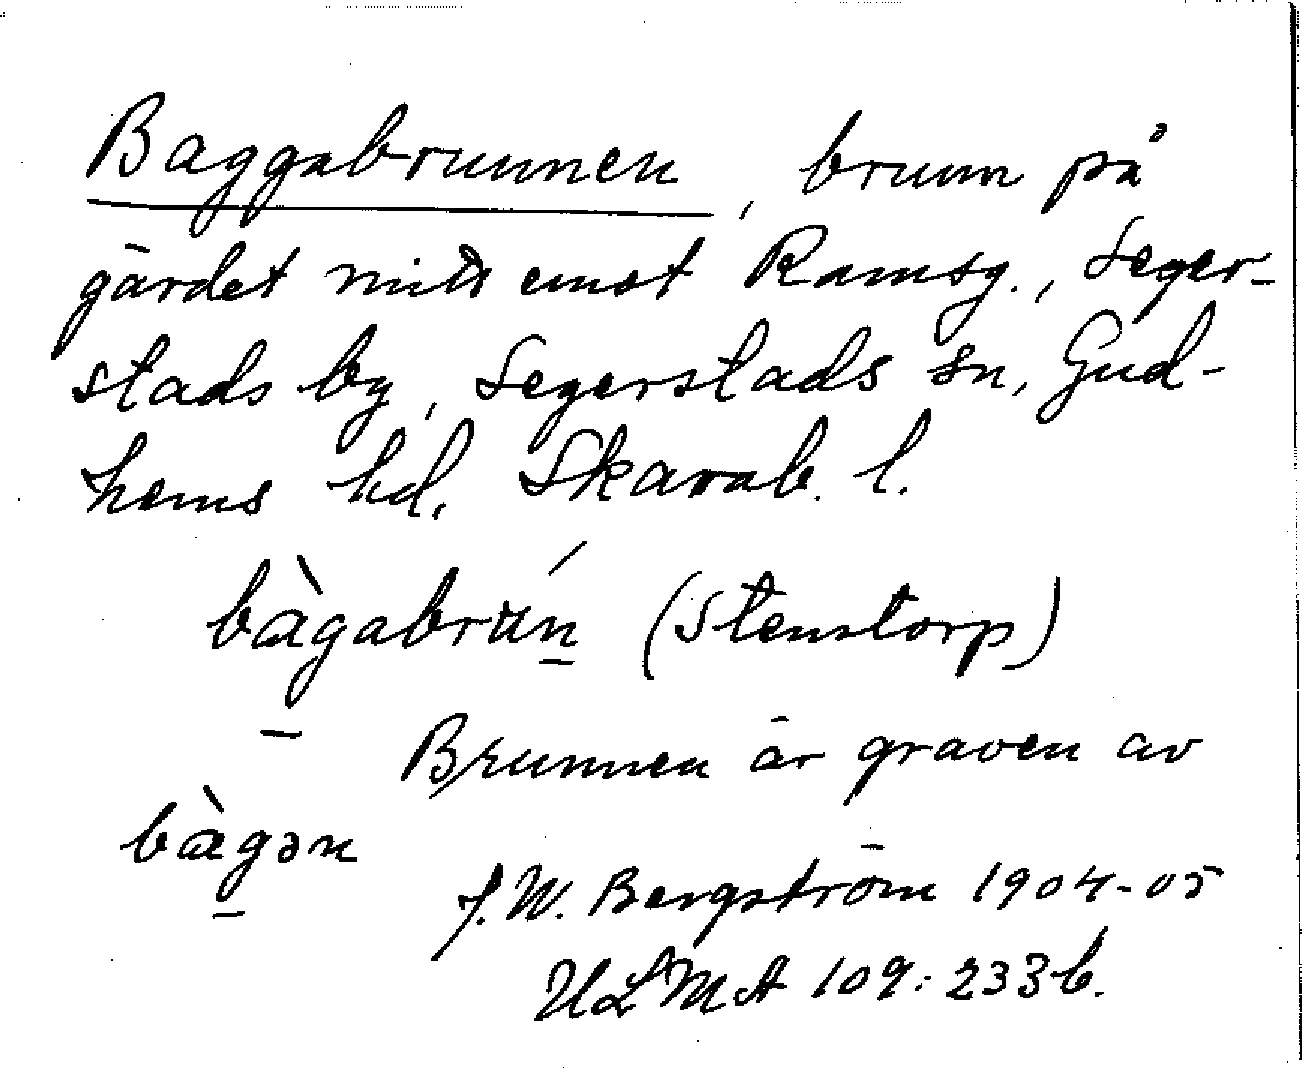 Baggabrunnen, brunn på
gärdet mitt emot Ramsg., Seger-
stads by, Segerstads sn, Gud-
hems hd, Skarab. l.
bàgabrún (Stenstorp)
Brunnen är graven av
bàgən
J. W. Bergström 1904-05
ULMA 109:233 b.